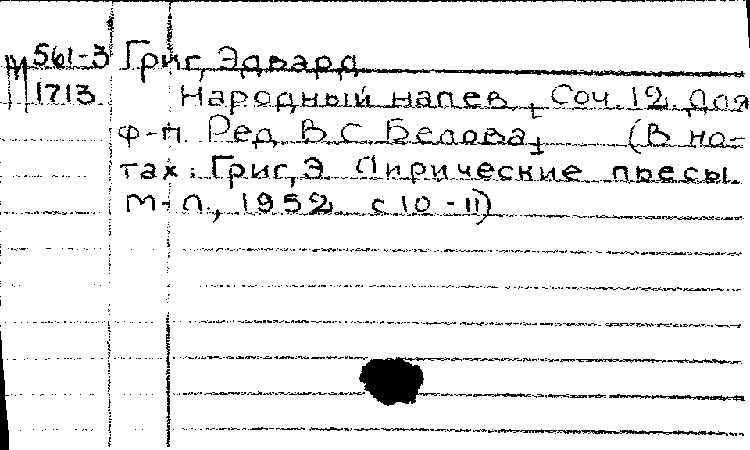 М 561-3 Григ, Эдвард
1713 Народный напев, Соч. 12. Для
ф-п. Ред. В.С. Белова. (В но=
тах: Григ, Э. Лирические пьесы.
М-Л., 1952. с 10-11)